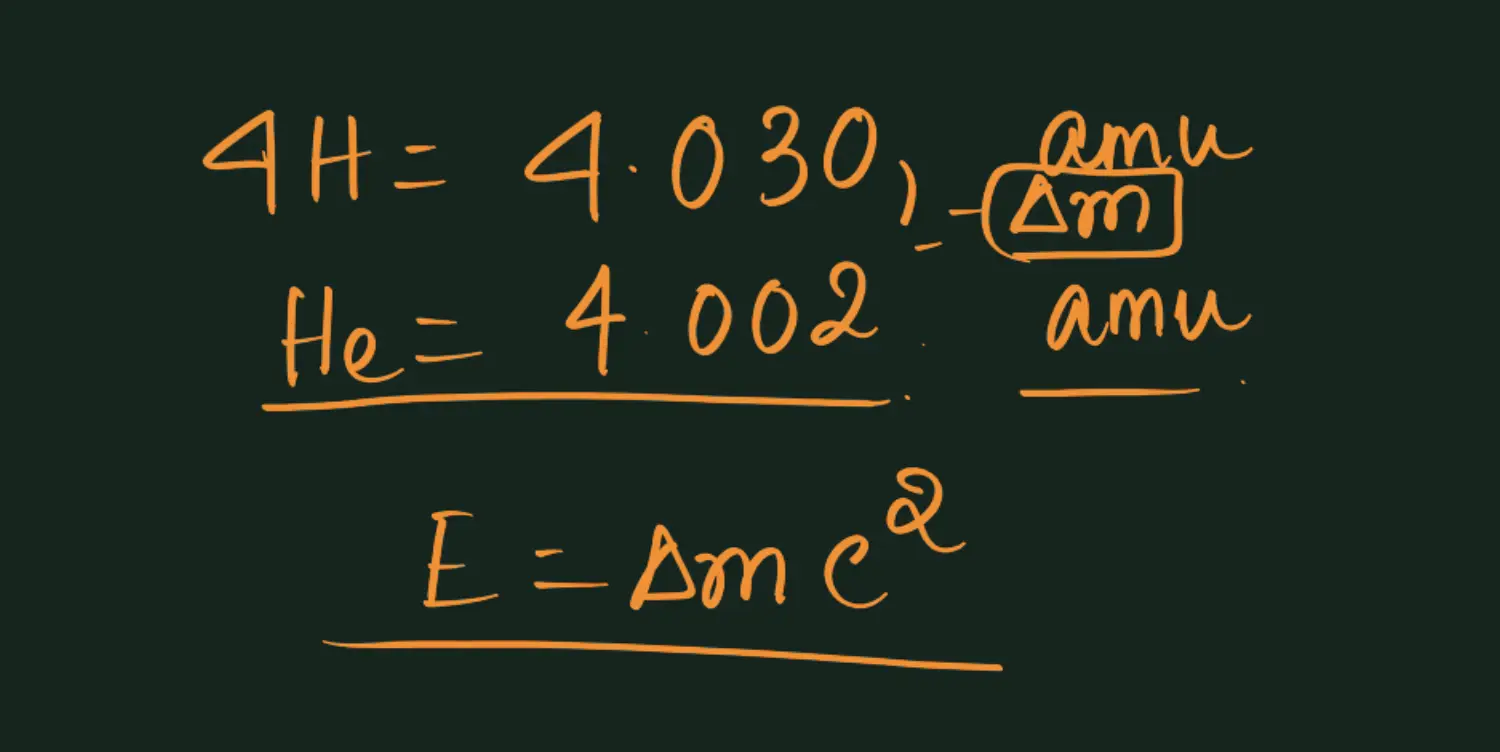 4H = 4.030, amu
-- Δm
He = 4.002 amu
E = Δmc²